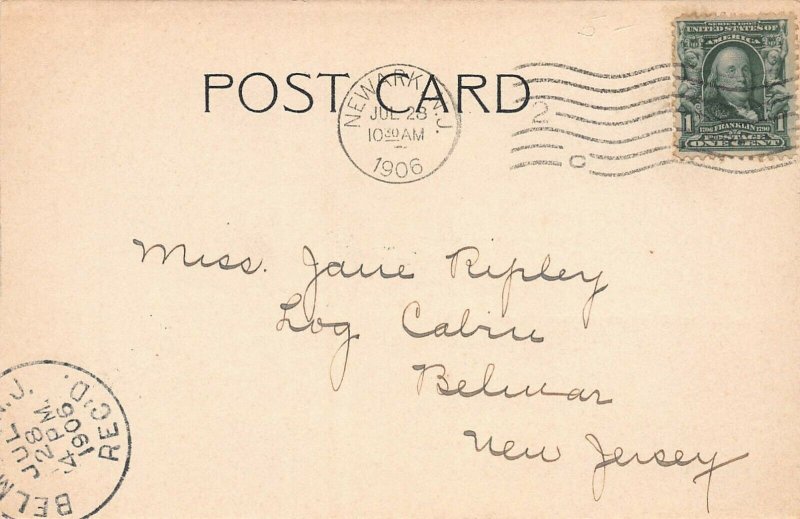 SERIES 1902
UNITED STATES OF
AMERICA
POST CARD
NEWARK, N.J.
JUL 28
10 30 AM
1906
2
C
1 1
1706 FRANKLIN 1790
POSTAGE
ONE CENT
Miss. Jane Ripley
Log Cabin
Belmar
New Jersey
N.J.
JUL
28
4 PM.
1906
REC'D.
BELM